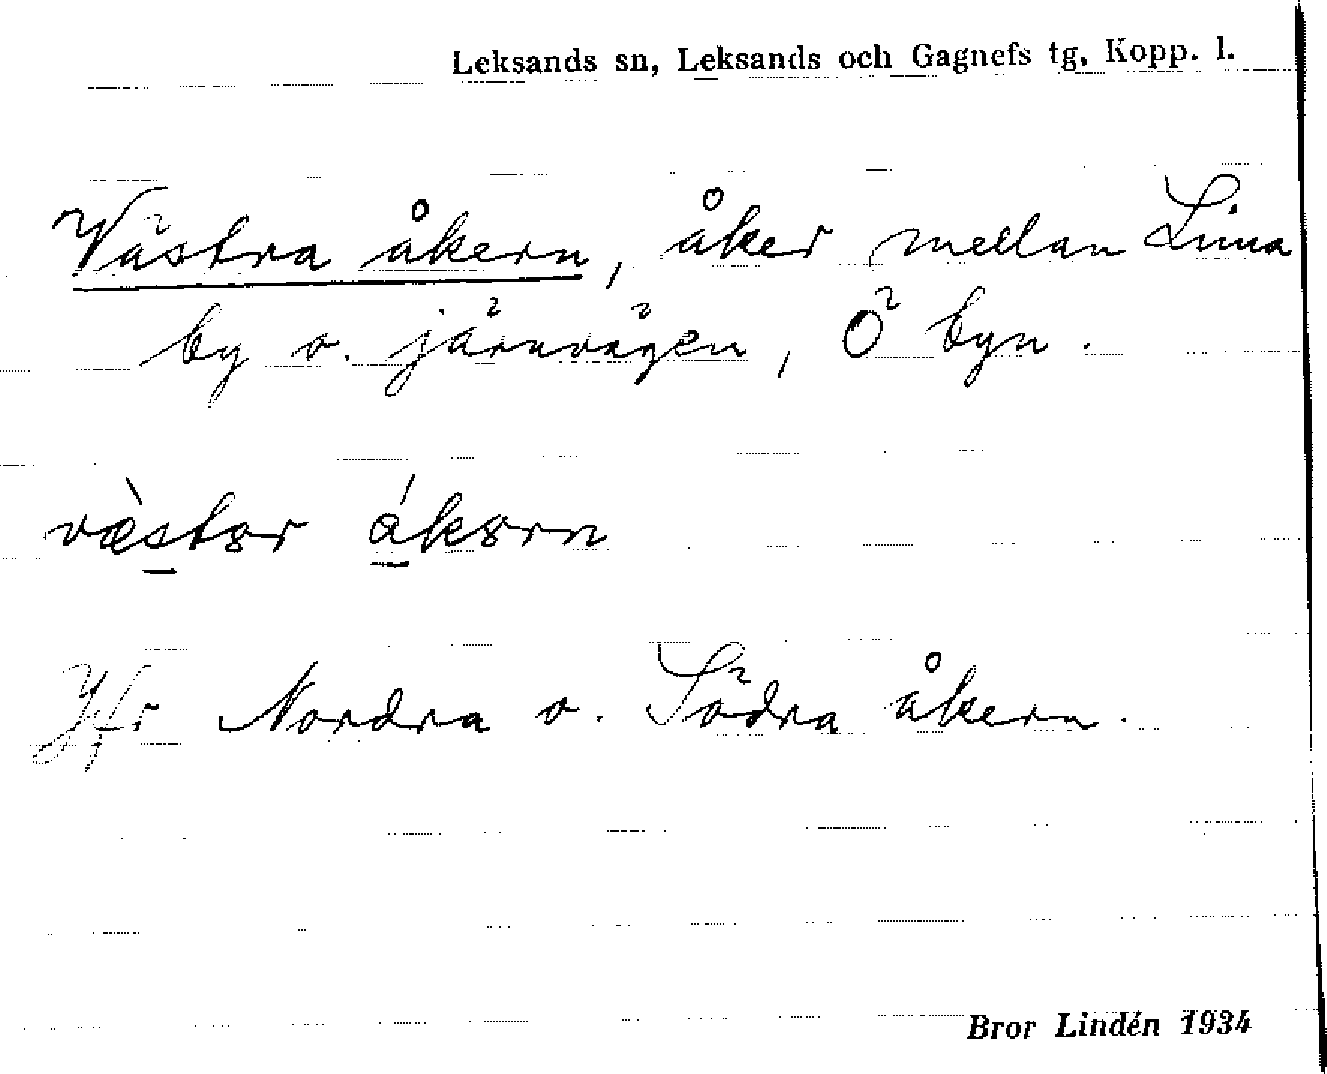 Leksands sn, Leksands och Gagnefs tg, Kopp. l.
Västra åkern, åker mellan Lima
by o. järnvägen, Ö byn.
væ̀stər ákərn
Jfr Nordra o. Södra åkern.
Bror Lindén 1934